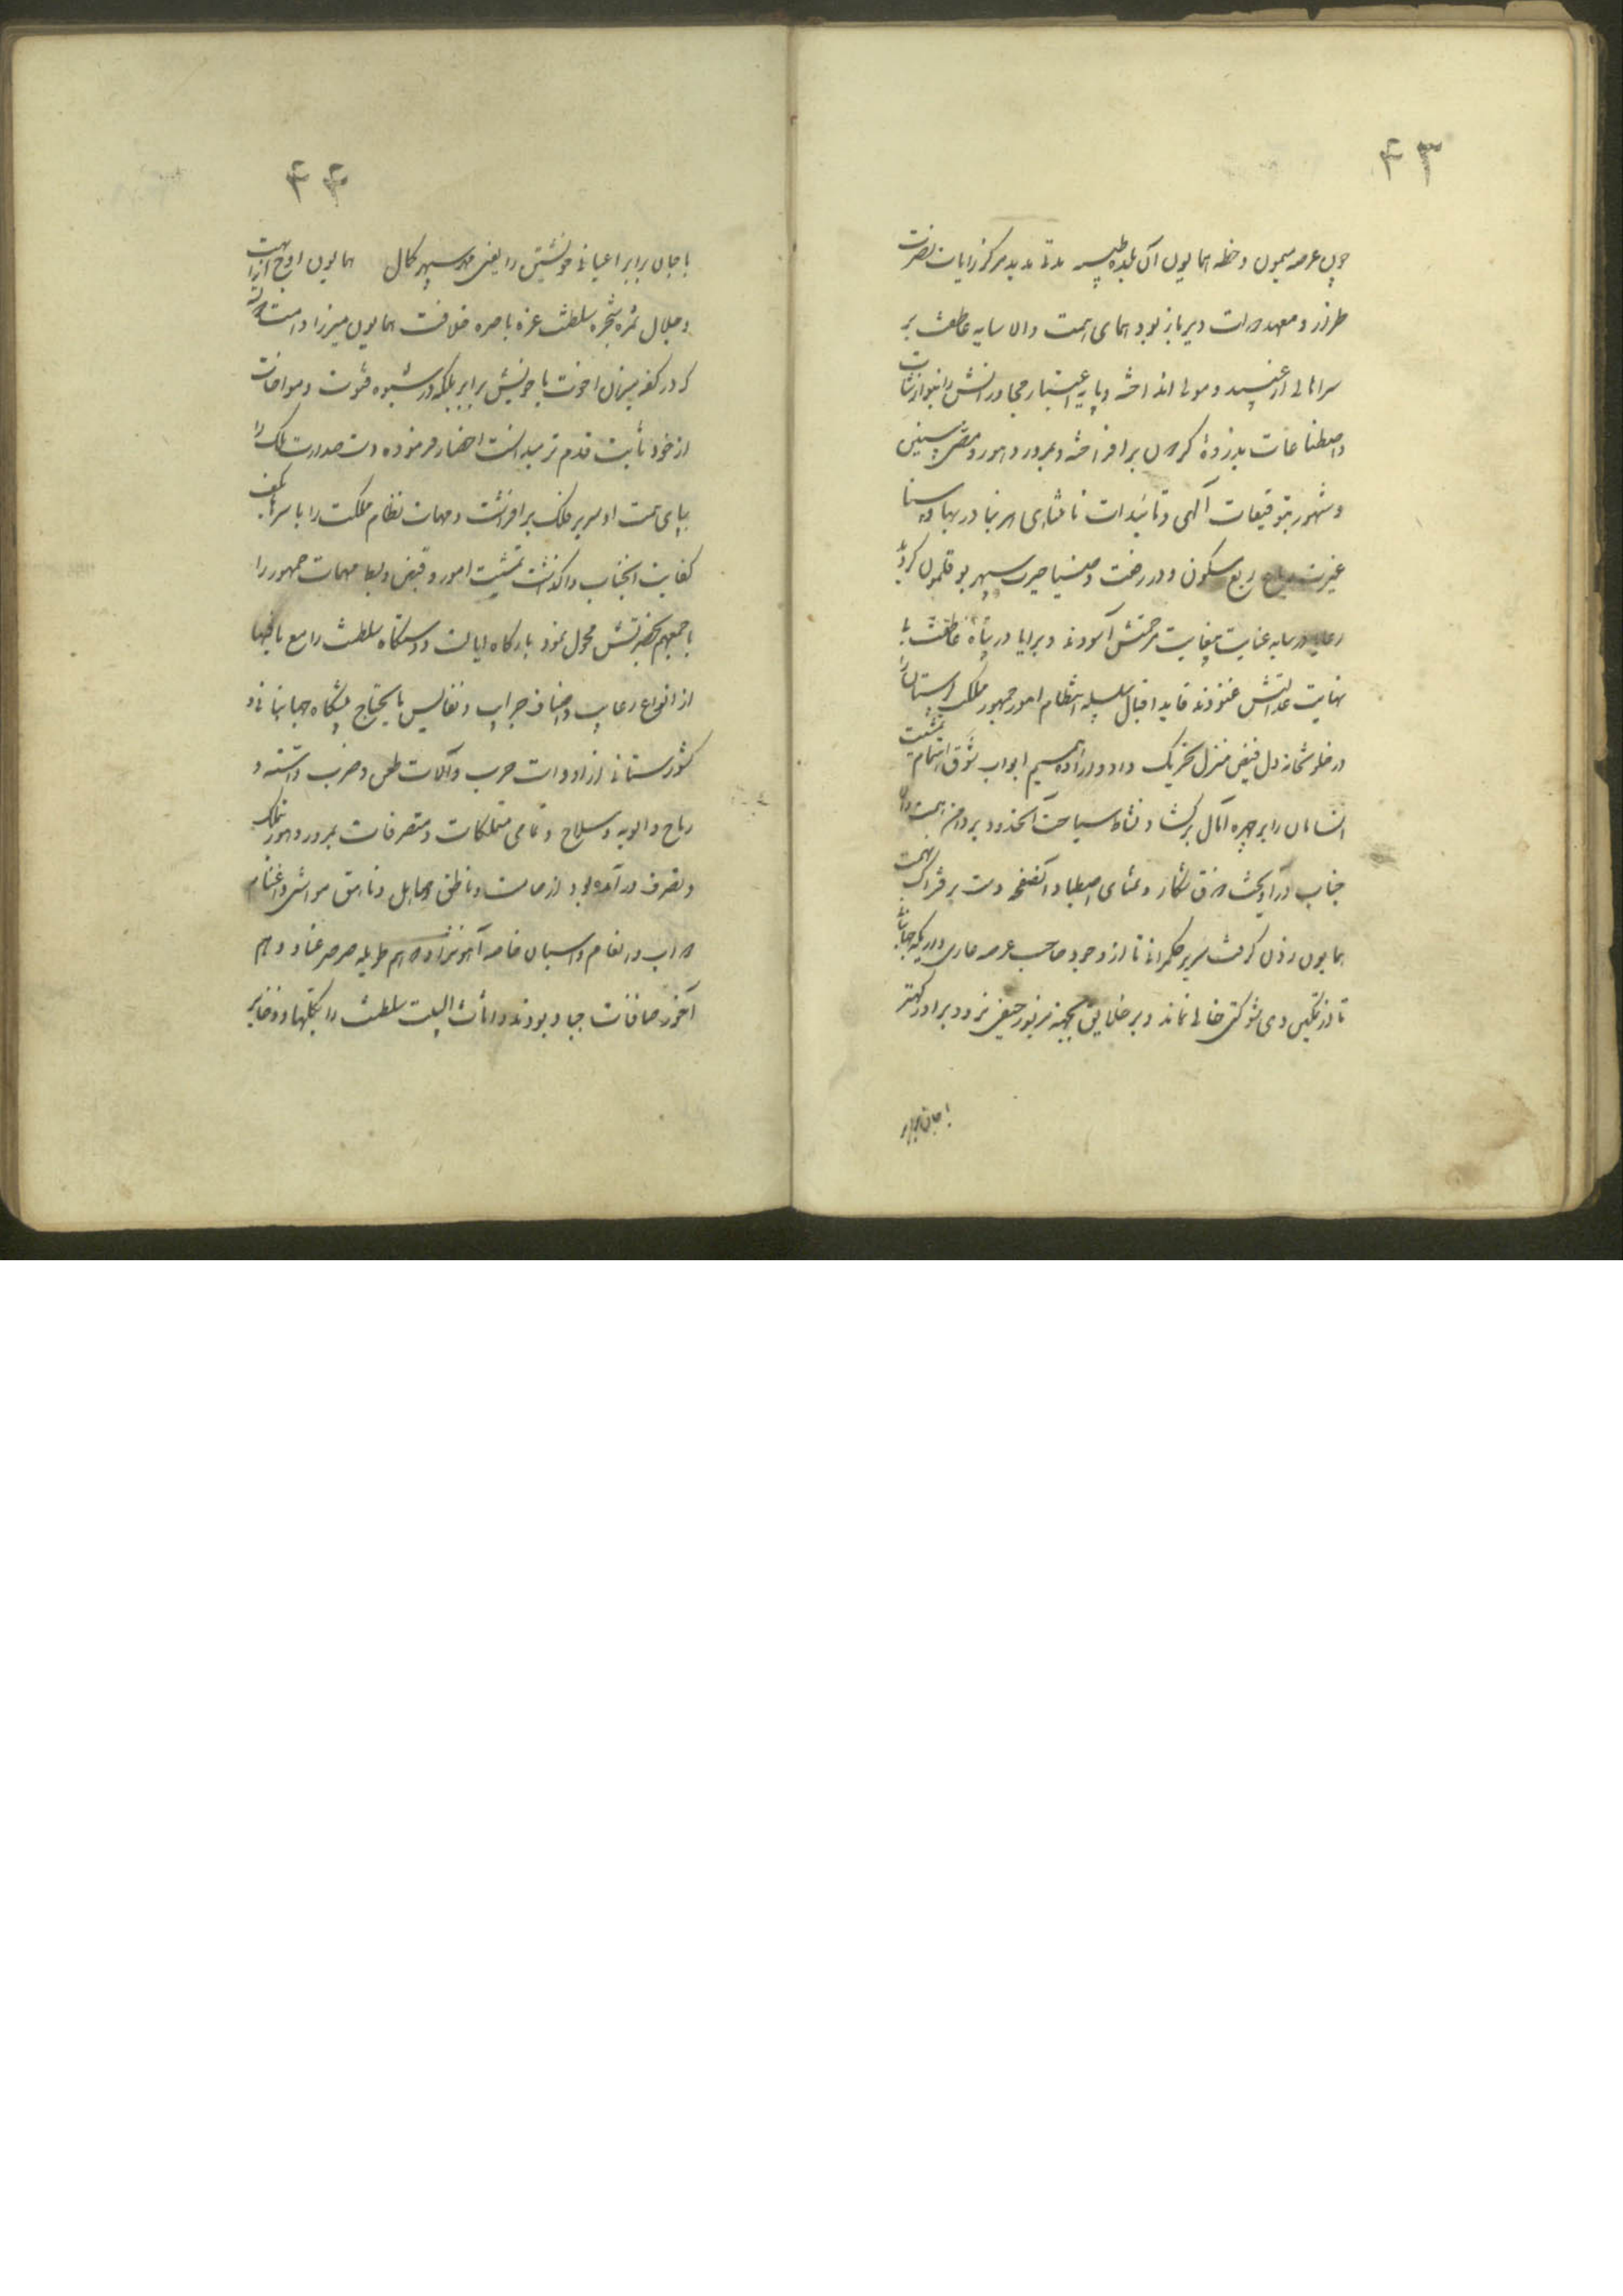 ۴۳
چون عرصه میمون و خطه همایون آن بلده طیبه مدتی مدید مرکز رایات نصرت
طراز و معهد رات دیرباز بود همای همت والا سایه عاطفت بر
سر اهالی از و موالی انداخته و پایه اعتبار مجاورانش را بنوازشات
و اصطناعات بذروه گردون برافراخته و بمرور دهور و مضی سنین
و شهور بتوفیقات آلهی و تائیدات نامتناهی هر بنا در بها و سنا
غیرت رباع ربع مسکون و در رفعت و ضیا حیرت سپهر بوقلمون گردید
رعایا در سایه عنایت بیغایت مرحمتش آسودند و برایا در پناه عاطفت بی
نهایت عدالتش غنودند قاید اقبال سلسله انتظام امور جمهور ملک را
در خلوتخانه دل فیض منزل تحریک داد و اراده ابواب شوق اهتمام بمشیت
انسامان را بر چهره آمال برگشاد و نشاط سیاحت آنحدود بر دامن همت والا
جناب درآویخت و ذوق شکار و تمنای اصطیاد آنصفحه دست بر فتراک نهمت
همایون زدن گرفت سریر حکمرانی تا از وجود صاحب عرصه عاری و اریکه جهانبانی
تا از تمکین ذی شوکتی خالی نماند و بر خلایق بجهته مزبور حیفی نرود برادر کهتر
با جان برابر
۴۴
با جان برابر اعیانی خویشتن را یعنی مهر سپهر کمال همایون اوج ابهت
و جلال ثمره شجره سلطنت غره باصره خلافت همایون میرزا دامت
که در کفه میزان اخوت با خویش برابر بلکه در شیوه فتوت و مواخات
از خود ثابت قدم تر میدانست احضار فرموده دست صدارت ملک را
بپای همت او سریر فلک برافراشت و مهمات نظام مملکت را باسرها بکف
کفایت انجناب واگذاشت تمشیت امور و قبض و بسط مهمات جمهور را
باجمعهم بحضرتش محول نمود بارگاه ایالت و دستگاه سلطنت را مع مافیها
از انواع رغایب و اصناف و نفایس مایحتاج پیشگاه جهانبانی و
کشورستانی از ادوات حرب و آلات طعن و ضرب و اسنه و
رماح و الویه و سلاح و تمامی متملکات و متصرفات بمرور دهور بتملک
و تصرف درآمده بود از صامت و ناطق و صاهل و ناهق مواشی و اغنام
دواب و انعام و اسبان خاصه آهونژاد که هم طویله صرصر عناد و هم
آخور صافنات جیاد بودند و اثاث البیت سلطنت را بکلها و ذخایر